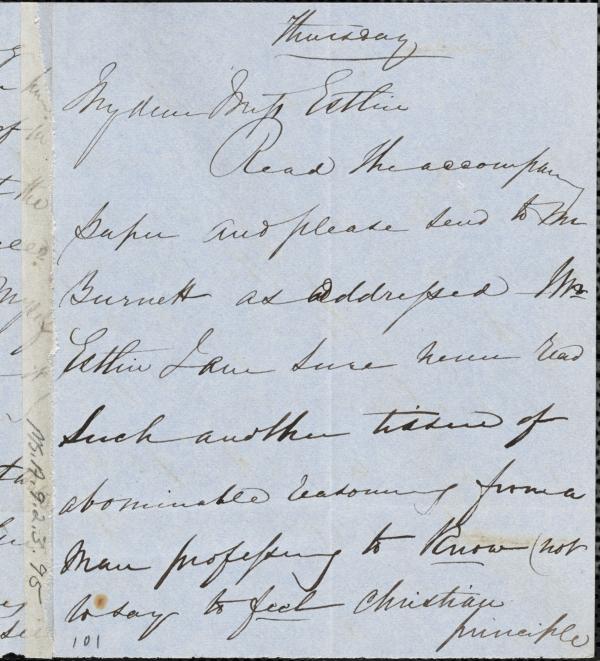 Thursday
My dear Miss Estlin
Read the accompany
paper and please send to Mr
Burnett as addressed Mr
Estlin I am sure never read
such another tissue of
abominable reasoning from a
man professing to know (not
to say to feel christian
principle
101
Ms.A.9.2.5.95
the